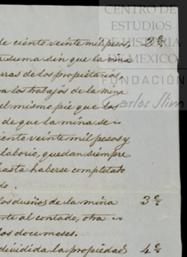 CENTRO DE
ESTUDIOS
DE HISTORIA
DE MÉXICO
FUNDACIÓN
Carlos Slim
de ciento veinte mil pesos, 2ª
suma den que la
de los propietarios
los trabajos de la mina
el mismo pie que los
de que la mina se
ciento veinte mil pesos y
laborio, quedan siempre
hasta haberse completado
do.
los dueños de la mina 3ª
parte al contado, otra
los doce meses.
dividida la propiedad 4ª